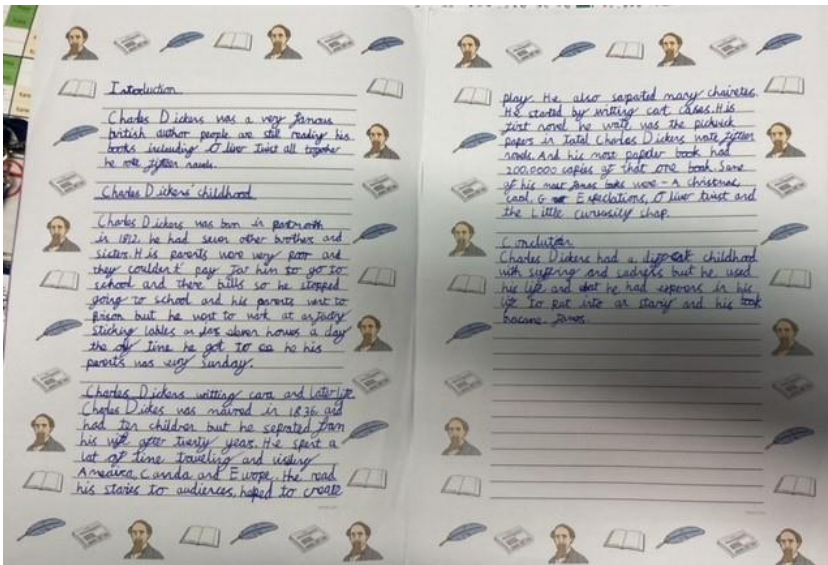 Introduction
Charles Dickens was a very famous
british author people are still reading his
books including Oliver Twist all together
he rote fifteen novels.
Charles Dickens' childhood
Charles Dickens was born in portmoth
in 1812. he had seven other brothers and
sisters. His parents were very poor and
they couldent' pay for him to go to
school and there bills so he stopped
going to school and his parents went to
prison but he went to work at a factory
sticking lables on for eleven houres a day
the only time he got to see he his
parents was evry Sunday.
Charles Dickens writting cara and Later life
Charles Dickes was maired in 1836 and
had ten children but he seprated from
his wife after twenty years. He spent a
lot of time traveling and visiting
America, Canda and Europe. He read
his stories to audiences, helped to create
play. He also saported many chairetes.
He started by writting cort cases. His
first novel he wate was the pickwick
papers in total Charles Dickens wate fifteen
novels. And his most papuler book had
200,0000 copies of that one book. Some
of his most famos boks were - A christmas
carol, Expectations, Oliver twist and
the Little curiusity shop.
Conclution
Charles Dickens had a childhood
with suffring and sadness but he used
his life and what he had in his
life to put into or storiy and his book
became famos.